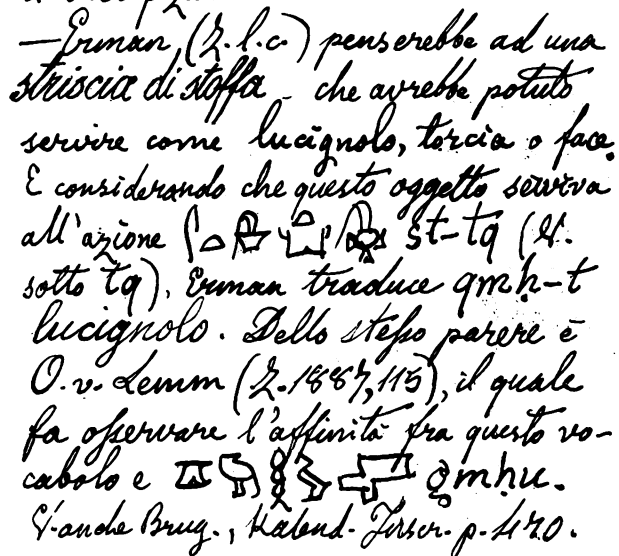 — Erman (Z. l. c.) penserebbe ad una
striscia di stoffa – che avrebbe potuto
servire come lucignolo, torcia o face.
E considerando che questo oggetto serviva
all'azione st-tq (V.
sotto tq). Erman traduce qmḥ-t
lucignolo. Dello stesso parere è
O. v. Lemm (Z. 1887, 115), il quale
fa osservare l'affinità fra questo vo-
cabolo e gmḥu.
V. anche Brug., Kalend. Inscr. p. 470.